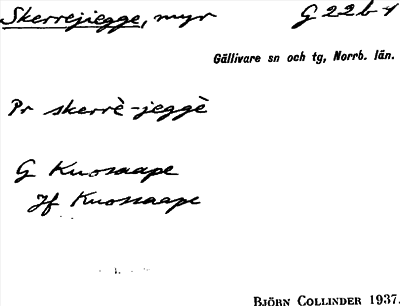 Skerrejiegge, myr G 22b4
Gällivare sn och tg, Norrb. län.
Pr skerrè-jeggè
G Kuossaape
Jf Kuossaape
BJÖRN COLLINDER 1937.